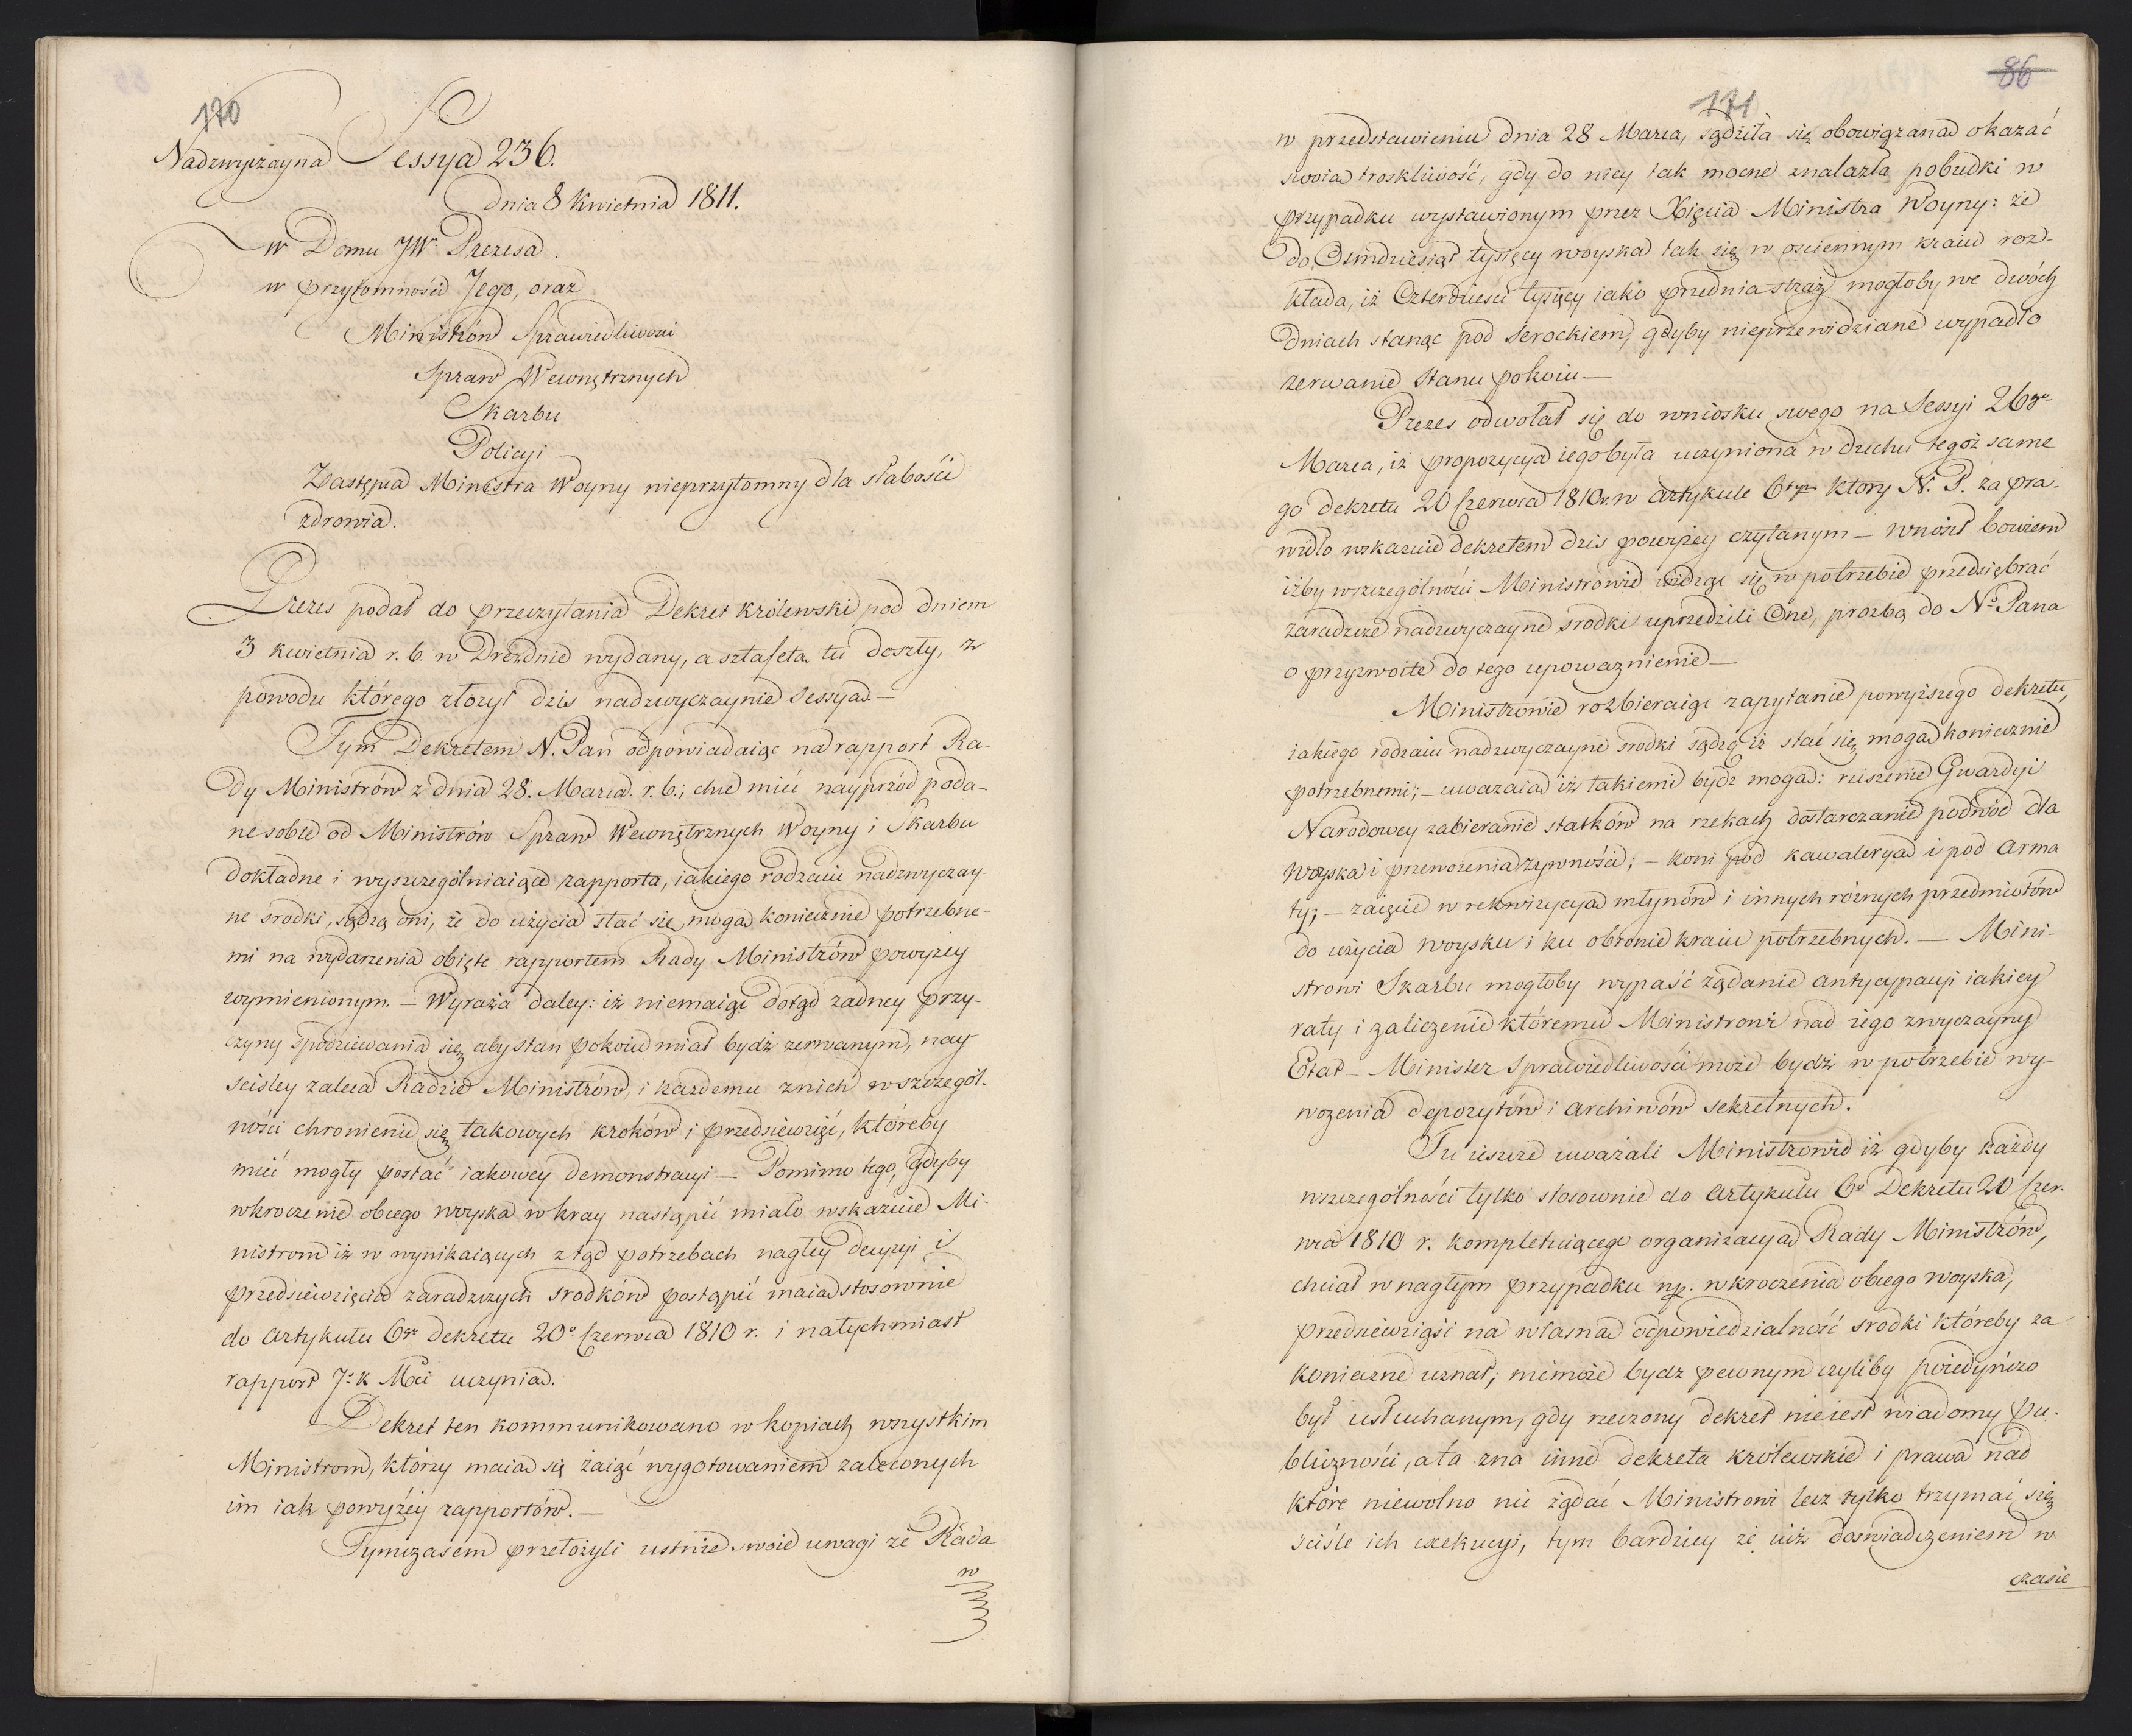 170
Nadzwyczayna Sessya 236.
Dnia 8 Kwietnia 1811.
w Domu JW. Prezesa.
w przytomności Jego, oraz
Ministrów Sprawiedliwości
Spraw Wewnętrznych
Skarbu
Policyi
Zastępca Ministra Woyny nieprzytomny dla słabości
zdrowia.
Prezes podał do przeczytania Dekret królewski pod dniem
3 kwietnia r. b. w Dreznie wydany, a sztafetą tu doszły, z
powodu którego złożył dziś nadzwyczaynie Sessyą. —
Tym Dekretem N. Pan odpowiadaiąc na rapport Ra-
dy Ministrów z dnia 28. Marca. r. b.; chce mieć nayprzód poda-
ne sobie od Ministrów Spraw Wewnętrznych Woyny i Skarbu
dokładne i wyszczególniaiące rapporta, iakiego rodzaiu nadzwyczay-
ne srodki, sądzą oni, że do użycia stać się mogą koniecznie potrzebne-
mi na wydarzenia obięte rapportem Rady Ministrów powyżey
wymienionym. — Wyraża daley: iż niemaiąc dotąd żadney przy-
czyny spodziewania się, aby stan pokoiu miał bydź zerwanym, nay-
sciśley zaleca Radzie Ministrów, i każdemu z nich w szczegól-
ności chronienie się takowych kroków i przedsiewzięć, któreby
mieć mogły postać iakowey demonstracyi — Pomimo tego, gdyby
wkroczenie obcego woyska w kray nastąpić miało wskazuie Mi-
nistrom iż w wynikaiących ztąd potrzebach nagłey decyzyi i
przedsiewzięcia zaradczych srodków postąpić maią stosownie
do Artykułu 6go Dekretu 20o Czerwca 1810 r. i natychmiast
rapport J. K Mci uczynią.
Dekret ten kommunikowano w kopiach wszystkim
Ministrom, którzy maią się zaiąć wygotowaniem zaleconych
im iak powyżey rapportów. —
Tymczasem przełożyli ustnie swoie uwagi że Rada
w
86
171
w przedstawieniu dnia 28 Marca, sądziła się obowiązaną okazać
swoią troskliwość, gdy do niey tak mocne znalazła pobudki w
przypadku wystawionym przez Xięcia Ministra Woyny: że
do Osmdziesiąt tysięcy woyska tak się w osciennym kraiu roz-
kłada, iż Czterdzieści tysięcy iako przednia straż mogłoby we dwóch
dniach stanąć pod Serockiem, gdyby nieprzewidziane wypadło
zerwanie Stanu pokoiu —
Prezes odwołał się do wniosku swego na Sessyi 26go
Marca, iż propozycya iego była uczyniona w duchu tegoż same
go dekretu 20 Czerwca 1810 r. w Artykule 6tym ktory N. P. za pra-
widło wskazuie dekretem dziś powyżey czytanym — wnosił bowiem
iżby wszczególności Ministrowie widząc się w potrzebie przedsiębrać
zaradcze nadzwyczayne srodki uprzedzili One, prozbą do No Pana
o przyzwoite do tego upoważnienie —
Ministrowie rozbieraiąc zapytanie powyższego dekretu,
iakiego rodzaiu nadzwyczayne srodki sądzą iż stać się mogą koniecznie
potrzebnemi; — uważaią iż takiemi bydź mogą: ruszenie Gwardyi
Narodowey zabieranie statków na rzekach dostarczanie podwód dla
Woyska i przewożenia żywności; — koni pod kawaleryą i pod Arma
ty; — zaięcie w rekwizycyą młynów i innych różnych przedmiotów
do użycia woysku i ku obronie kraiu potrzebnych. — Mini-
strowi Skarbu mogłoby wypaść żądanie antycypacyi iakiey
raty i zaliczenie któremu Ministrowi nad iego zwyczayny
Etat — Minister Sprawiedliwości może bydź w potrzebie wy-
wożenia depozytów i Archiwów sekretnych.
Tu ieszcze uważali Ministrowie iż gdyby każdy
wszczególności tylko stosownie do Artykułu 6o Dekretu 20 Czer-
wca 1810 r. kompletuiącego organizacyą Rady Ministrów,
chciał w nagłym przypadku np. wkroczenia obcego woyska,
przedsiewziąść na własną odpowiedzialność srodki któreby za
konieczne uznał; niemoże bydz pewnym czyliby poiedyńczo
był usłuchanym, gdy rzeczony dekret nieiest wiadomy Pu-
bliczności, a ta zna inne dekreta królewskie i prawa nad
które niewolno nic żądać Ministrowi lecz tylko trzymać się
ściśle ich exekucyi, tym bardziey że iuż doswiadczeniem w
czasie